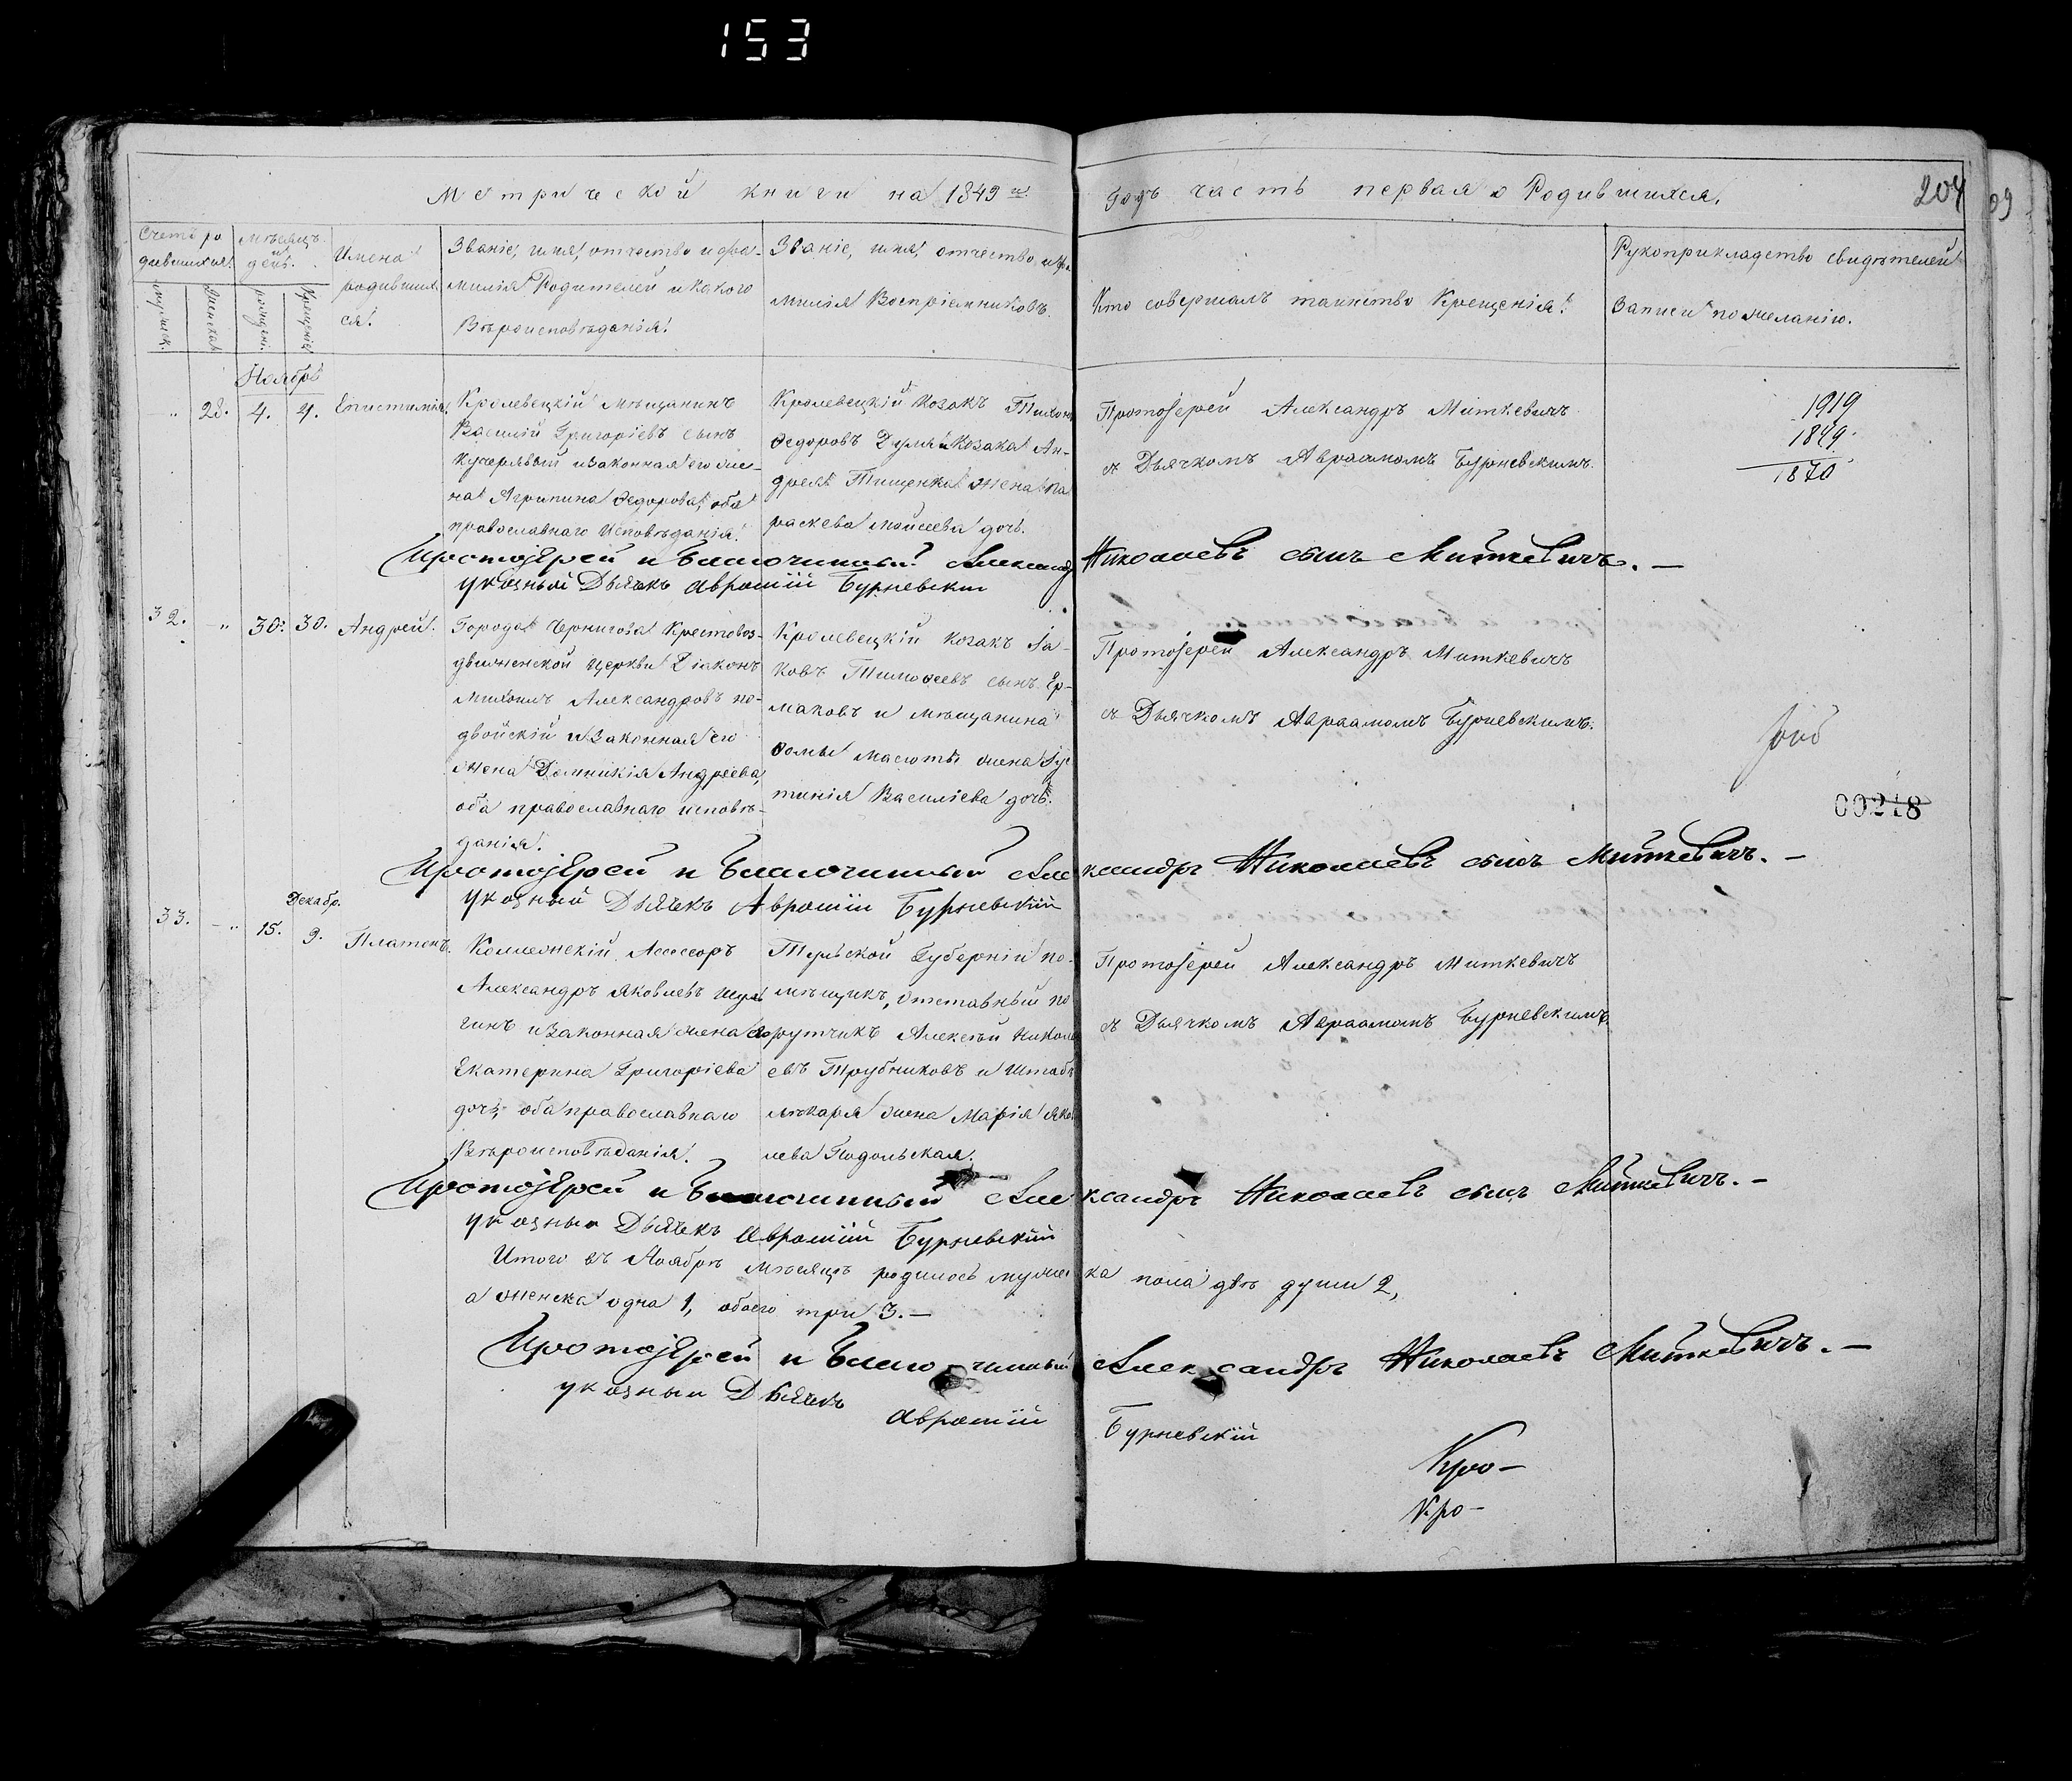 153
Метрической книги на 1849й годъ часть первая о Родившихся.
204
09
Счетъ родившихся.
мужеск.
Женска
Мѣсяцъ. день.
рожден.
Крещенія
Имена родившихся.
Званіе, имя, отчество и фамилія Родителей и какого Вѣроисповѣданія.
Званіе, имя, отчество и фамилія Воспріемниковъ.
Кто совершалъ таинство Крещенія.
Рукоприкладство свидѣтелей Записи по желанію.
Ноябрь
" 28. 4. 4. Епистимія
Кролевецкій мѣщанинъ
Василій Григоріевъ сынъ
Кучерявый и законная его же-
на Агрипина Федорова, оба
православнаго Исповѣданія.
Кролевецкій Козакъ Тихонъ
Федоровъ и Козака Ан-
дрея Тищенка жена Па
раскева Моисеева дочь.
Протоіерей Александръ Миткевичъ
съ Дьячкомъ Авраамомъ Бурневскимъ.
1919
1849.
1870
Протоіерей и Благочинный Александръ Николаевъ сынъ Миткевичъ. —
указный Дьячекъ Аврамій Бурневскій
32. — " 30. 30. Андрей.
Города Чернигова Крестовоз-
движенской церкви Діаконъ
Михаилъ Александровъ по-
двойскій и законная его
жена Домникія Андреева,
оба православнаго исповѣ-
данія.
Кролевецкій козакъ Іа-
ковъ Тимофеевъ сынъ Ер-
маковъ и мѣщанина
Фомы Масюты жена Іус
тинія Василіева дочь.
Протоіерей Александръ Миткевичъ
съ Дьячкомъ Авраамомъ Бурневскимъ.
00218
Протоіерей и Благочинный Александръ Николаевъ сынъ Миткевичъ. —
указный Дьячекъ Аврамій Бурневскій
Декабр.
33. — " 15. 9. Платонъ.
Коллежскій Ассесоръ
Александръ Яковлевъ
и законная жена его
Екатерина Григоріева
дочь, оба православнаго
Вѣроисповѣданія.
Тульской Губерніи по-
мѣщикъ, отставный по
рутчикъ Алексѣй Никола
евъ Трубниковъ и Штабъ
лѣкаря жена Марія Яков
лева Подольская.
Протоіерей Александръ Миткевичъ
съ Дьячкомъ Авраамомъ Бурневскимъ.
Протоіерей и Благочинный Александръ Николаевъ сынъ Миткевичъ. —
указный Дьячекъ Аврамій Бурневскій
Итого въ Ноябрѣ мѣсяцѣ родилось мужеска пола двѣ души 2,
а женска одна 1, обоего три 3. —
Протоіерей и Благочинный Александръ Николаевъ Миткевичъ. —
указный Дьячекъ Аврамій Бурневскій
Кро-
Кро-